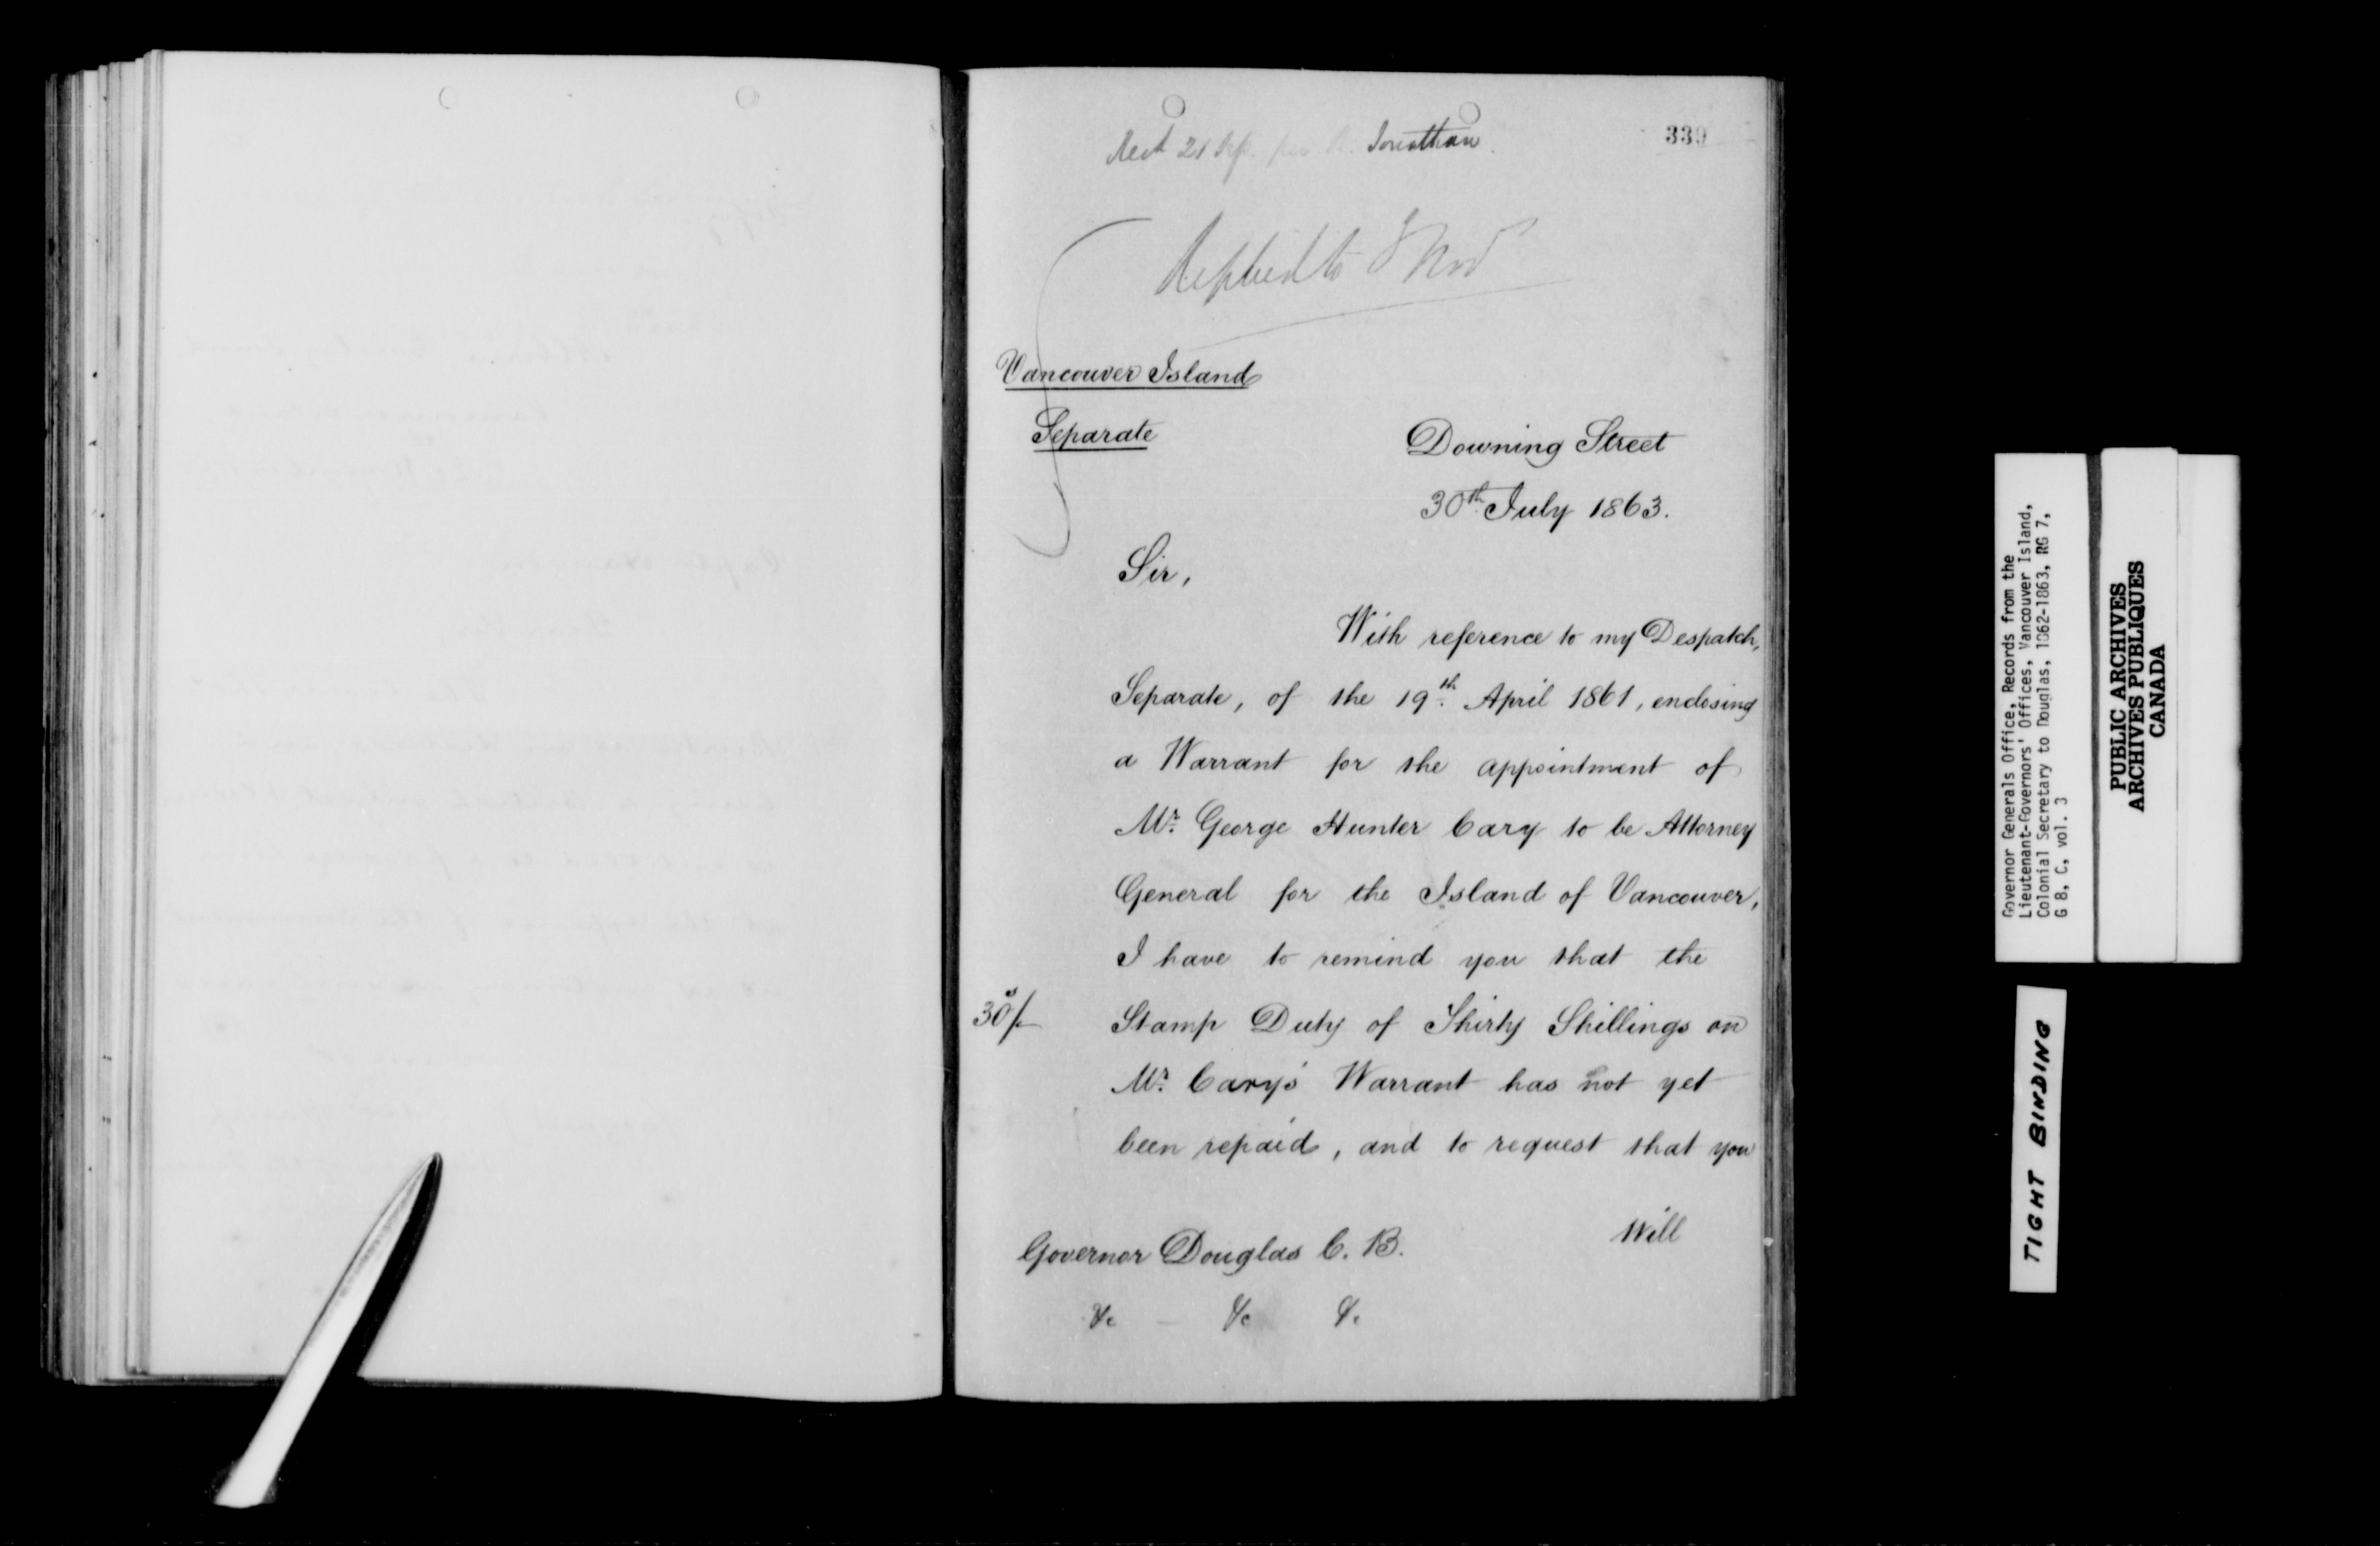 Recd 21 Sep. per B. Jonathan
339
Replied to 8 Nov
Vancouver Island
Separate
Downing Street
30th July 1863.
Sir,
With reference to my Despatch,
Separate, of the 19th April 1861, enclosing
a Warrant for the appointment of
Mr. George Hunter Cary to be Attorney
General for the Island of Vancouver,
I have to remind you that the
30s/-
Stamp Duty of Thirty Shillings on
Mr. Cary's Warrant has not yet
been repaid, and to request that you
Will
Governor Douglas C. B.
&c &c &c
Governor Generals Office, Records from the
Lieutenant-Governors' Offices, Vancouver Island,
Colonial Secretary to Douglas, 1862-1863, RG 7,
G 8, C, vol. 3
PUBLIC ARCHIVES
ARCHIVES PUBLIQUES
CANADA
TIGHT BINDING